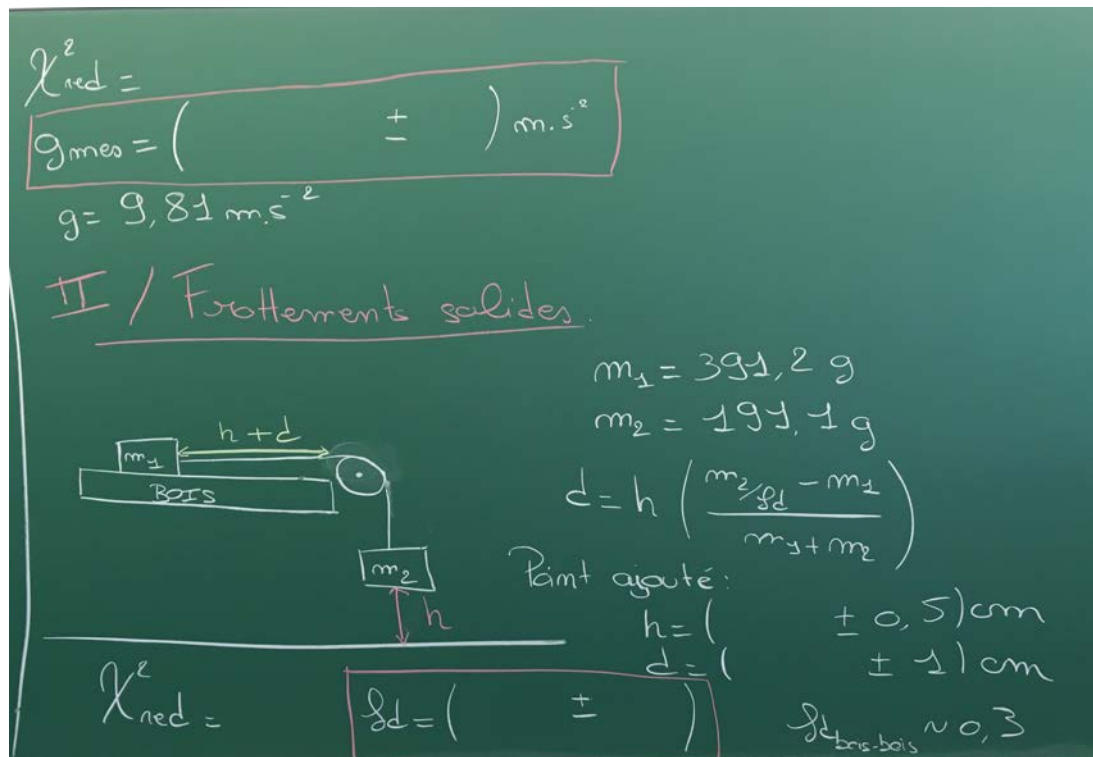 χ²red =
gmes = ( ± ) m.s⁻²
g = 9,81 m.s⁻²
II / Frottements solides.
m₁ = 391,2 g
m₂ = 191,1 g
h + d
m₁
BOIS
d = h ( (m₂/fd - m₁) / (m₁ + m₂) )
m₂
Point ajouté:
h
h = ( ± 0,5) cm
d = ( ± 1) cm
χ²red =
fd = ( ± )
fd bois-bois ~ 0,3